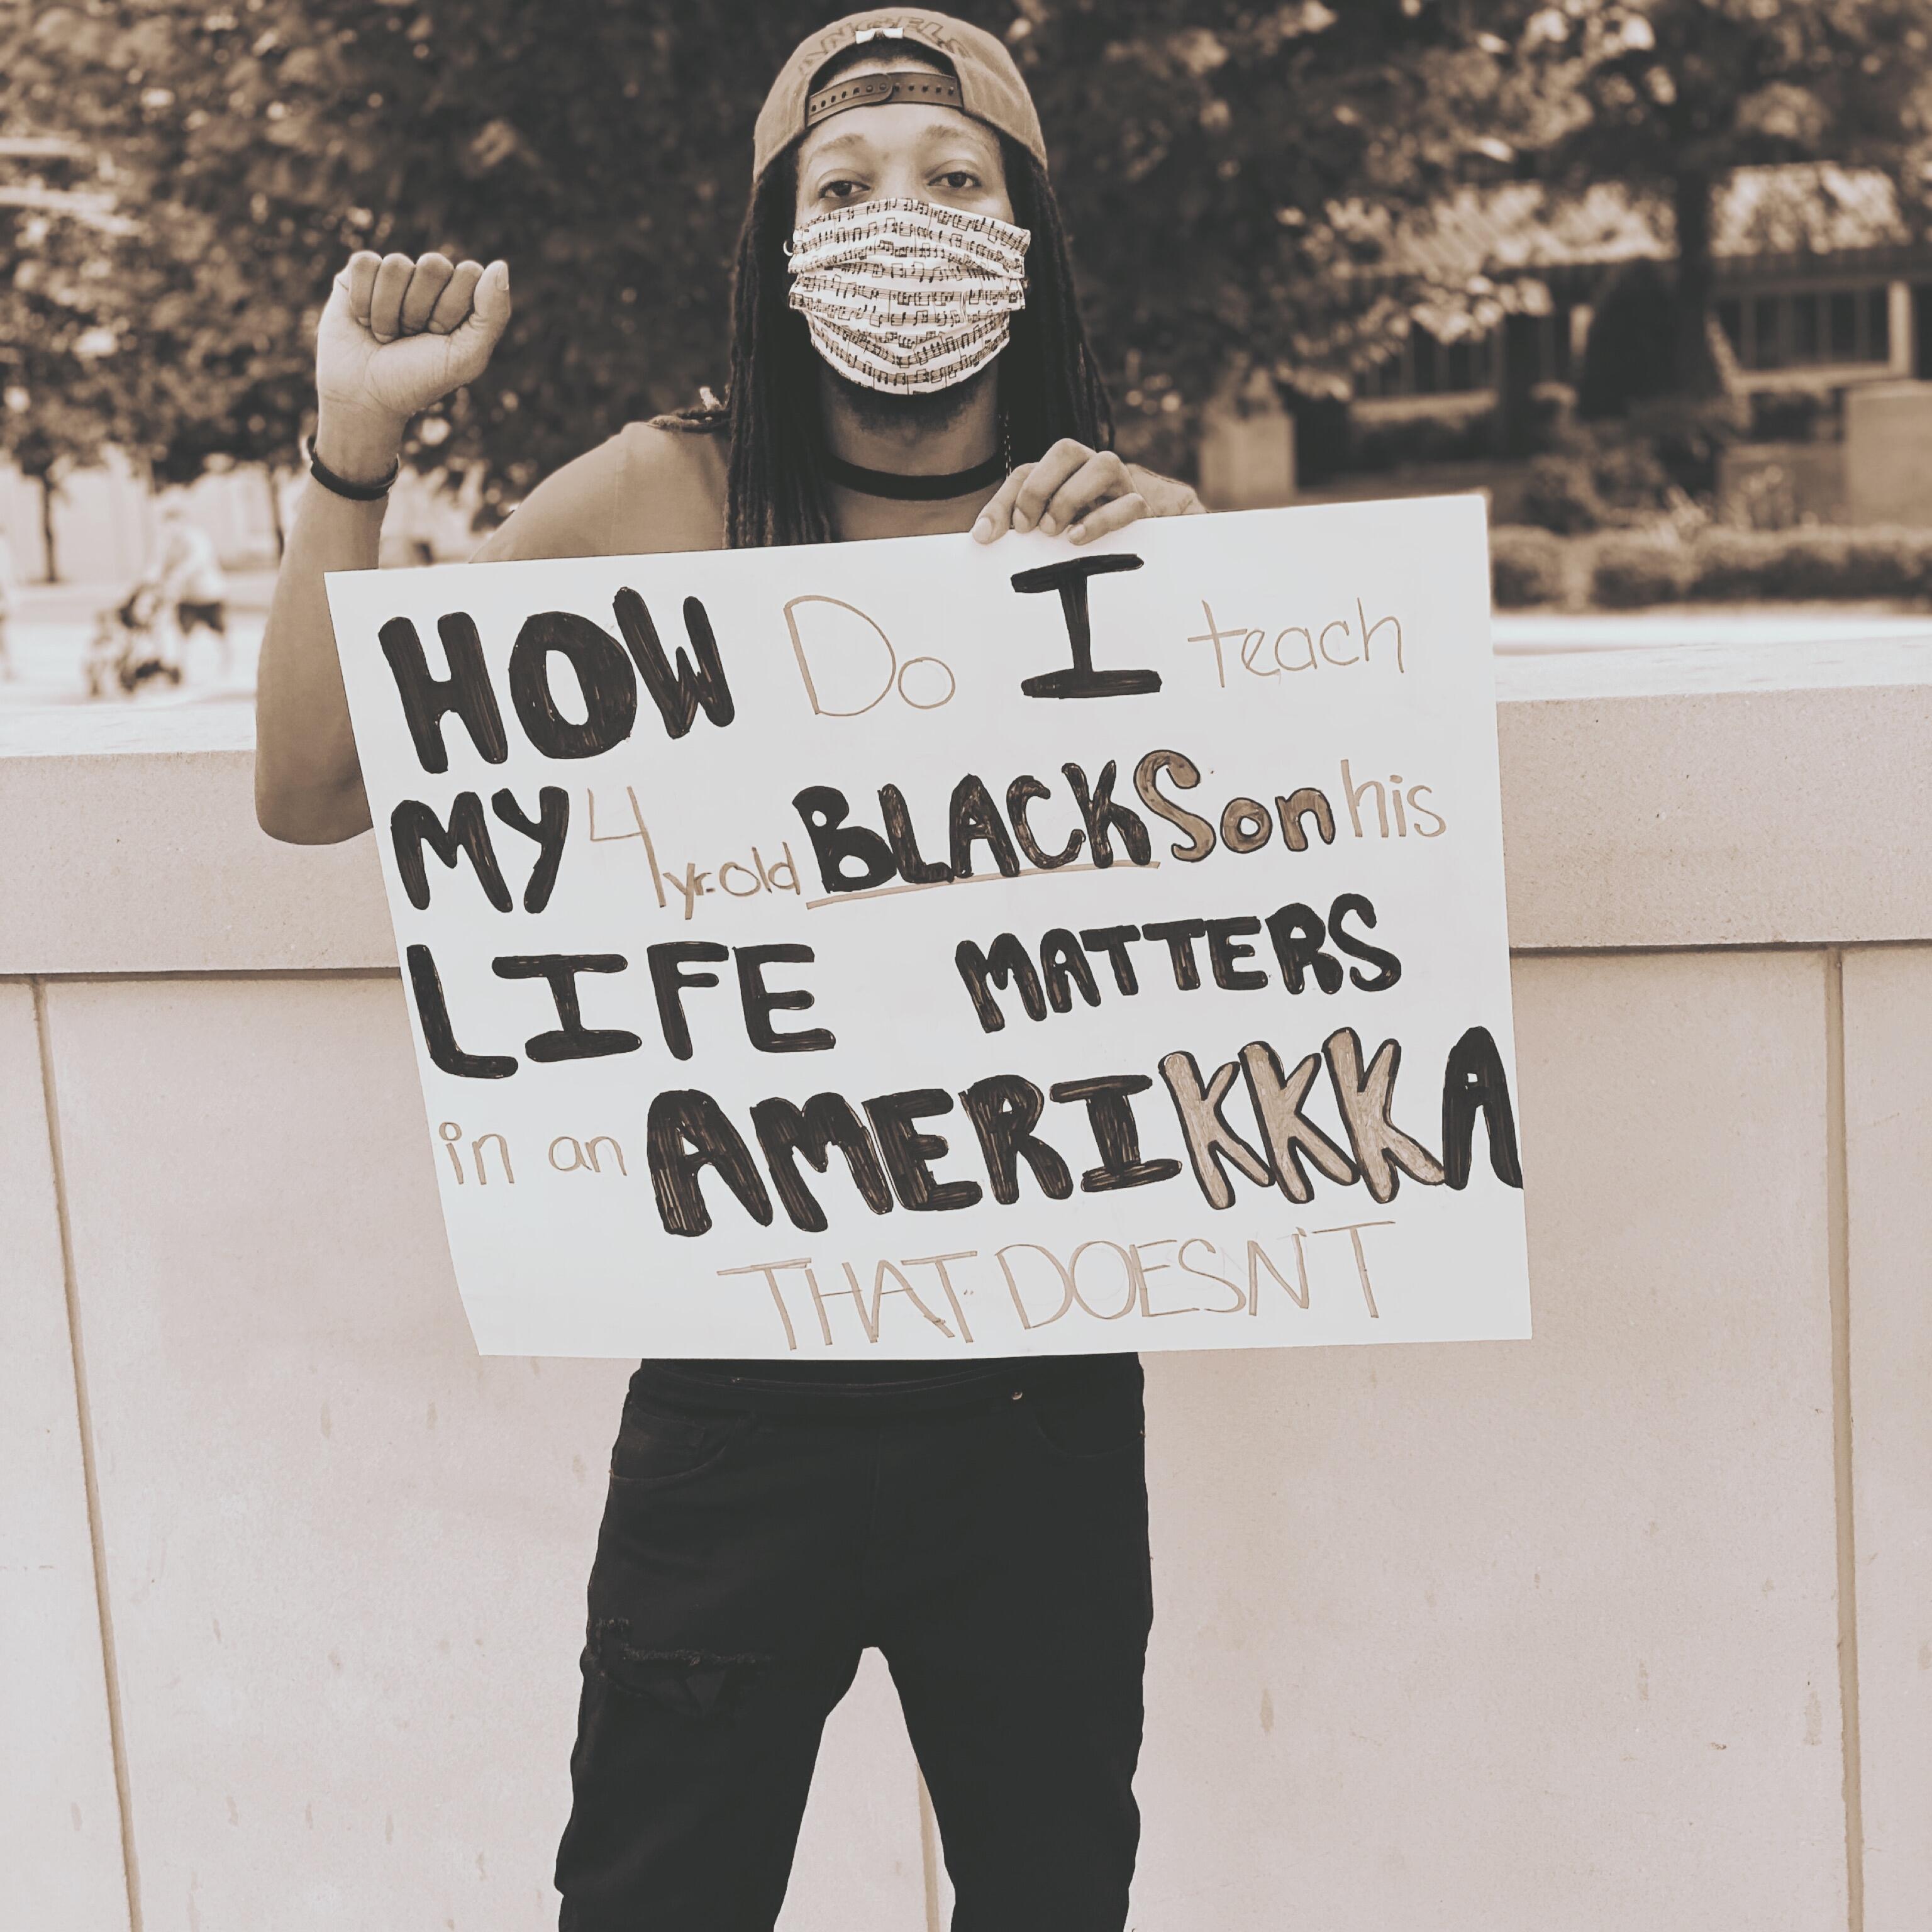 HOW Do I teach
MY 4 yr. old BLACK Son his
LIFE MATTERS
in an AMERIKKKA
THAT DOESN'T